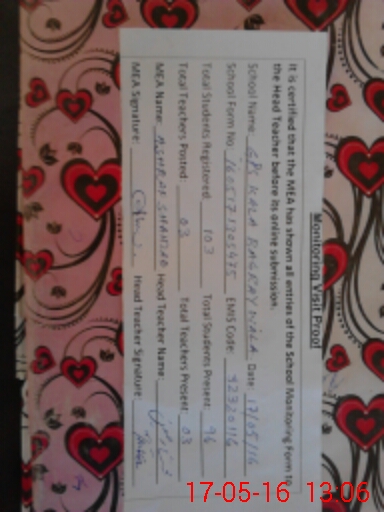 Monitoring Visit Proof
It is certified that the MEA has shown all entries of the School Monitoring Form to
the Head Teacher before its online submission.
School Name: GPS KALA Date 17/05/16
School Form No. EMIS Code: 92320116
Total Students Registered 103 Total Students Present 96
Total Teachers Posted: 03 Total Teachers Present: 03
MEA Name: SHAHZAD Head Teacher Name:
MEA Signature: Head Teacher Signature:
17-05-16 13:06